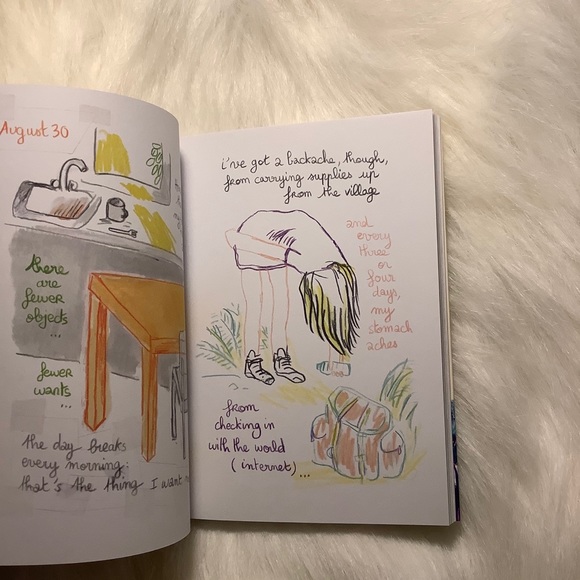 August 30
there
are
fewer
objects
...
fewer
wants
...
the day breaks
every morning:
that's the thing I want
i've got a backache, though,
from carrying supplies up
from the village
and
every
three
or
four
days,
my
stomach
aches
from
checking in
with the world
(internet)...